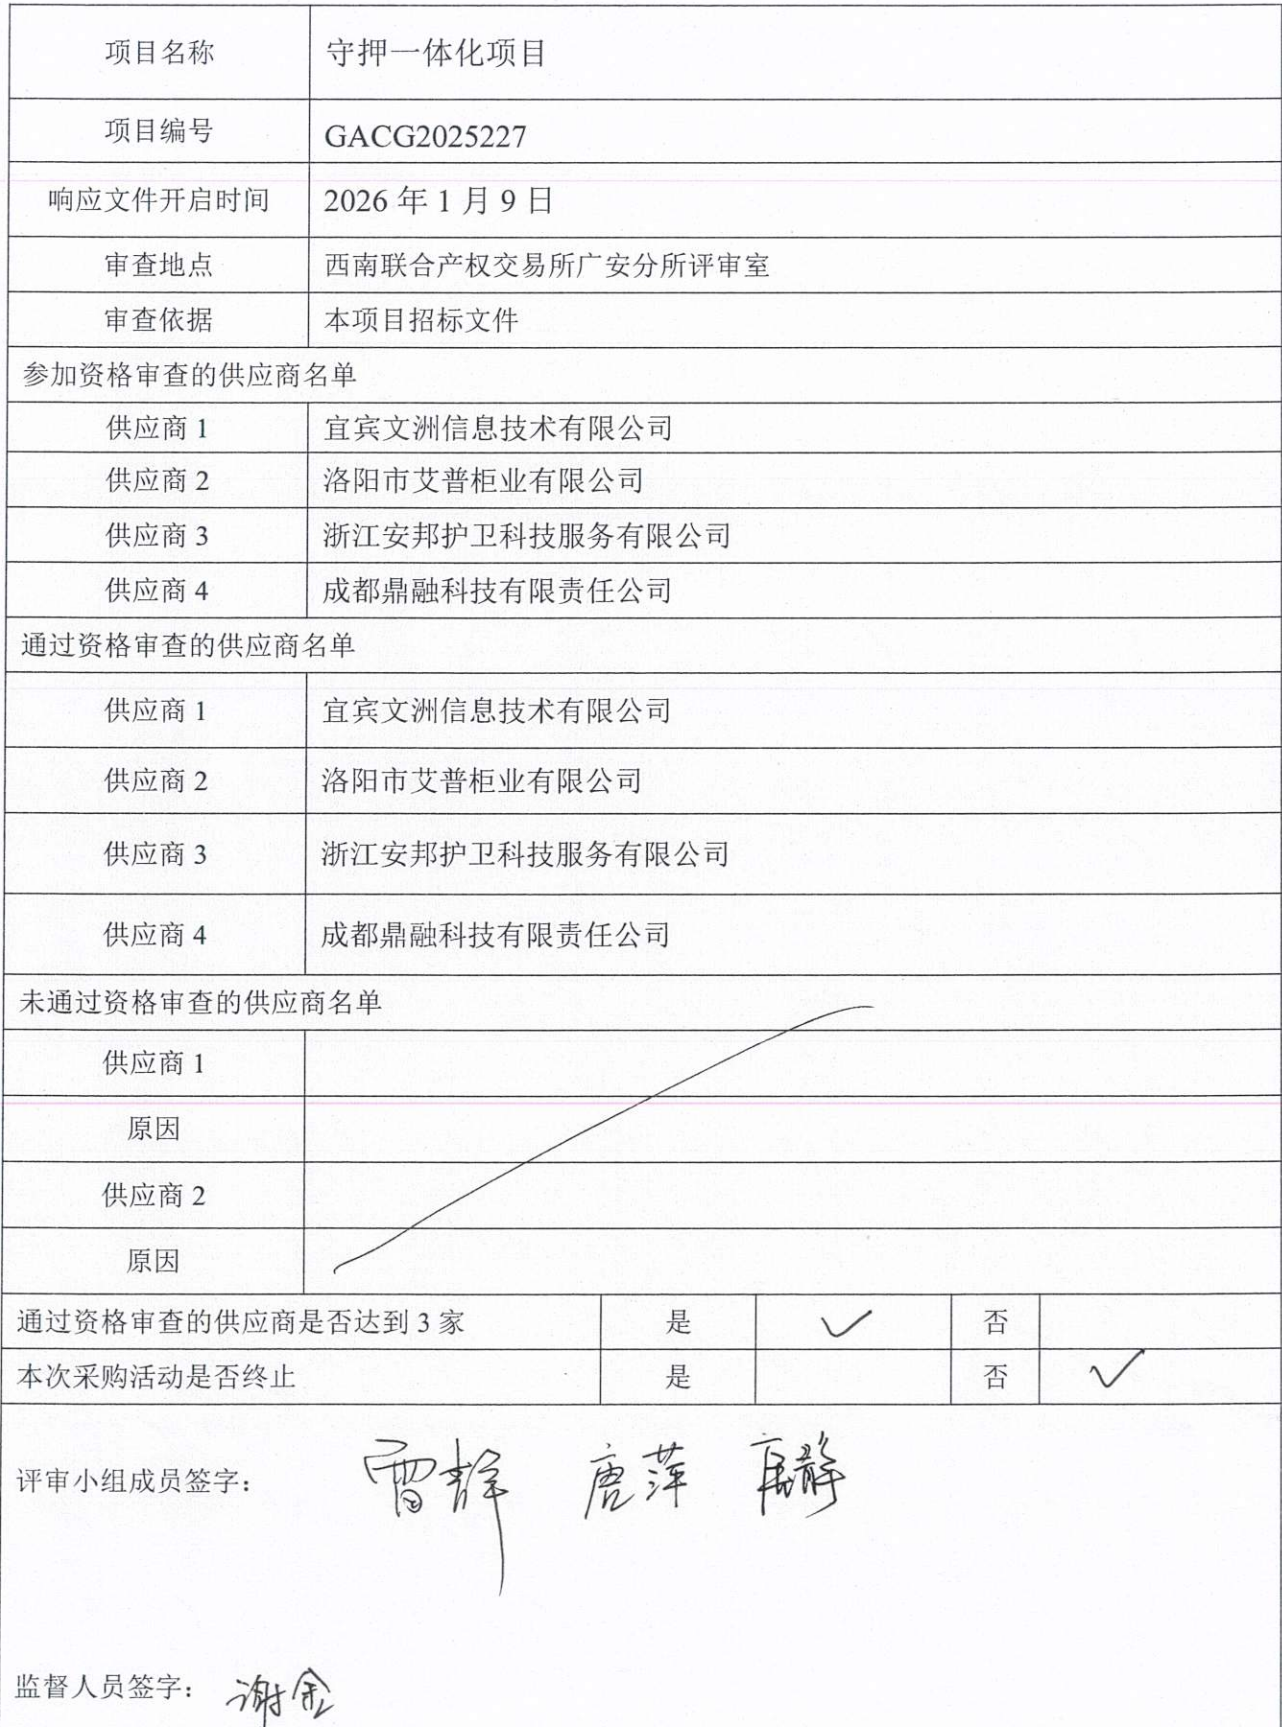 项目名称 守押一体化项目
项目编号 GACG2025227
响应文件开启时间 2026 年 1 月 9 日
审查地点 西南联合产权交易所广安分所评审室
审查依据 本项目招标文件
参加资格审查的供应商名单
供应商 1 宜宾文洲信息技术有限公司
供应商 2 洛阳市艾普柜业有限公司
供应商 3 浙江安邦护卫科技服务有限公司
供应商 4 成都鼎融科技有限责任公司
通过资格审查的供应商名单
供应商 1 宜宾文洲信息技术有限公司
供应商 2 洛阳市艾普柜业有限公司
供应商 3 浙江安邦护卫科技服务有限公司
供应商 4 成都鼎融科技有限责任公司
未通过资格审查的供应商名单
供应商 1
原因
供应商 2
原因
通过资格审查的供应商是否达到 3 家 是 ✓ 否
本次采购活动是否终止 是 否 ✓
评审小组成员签字： 唐萍
监督人员签字： 谢